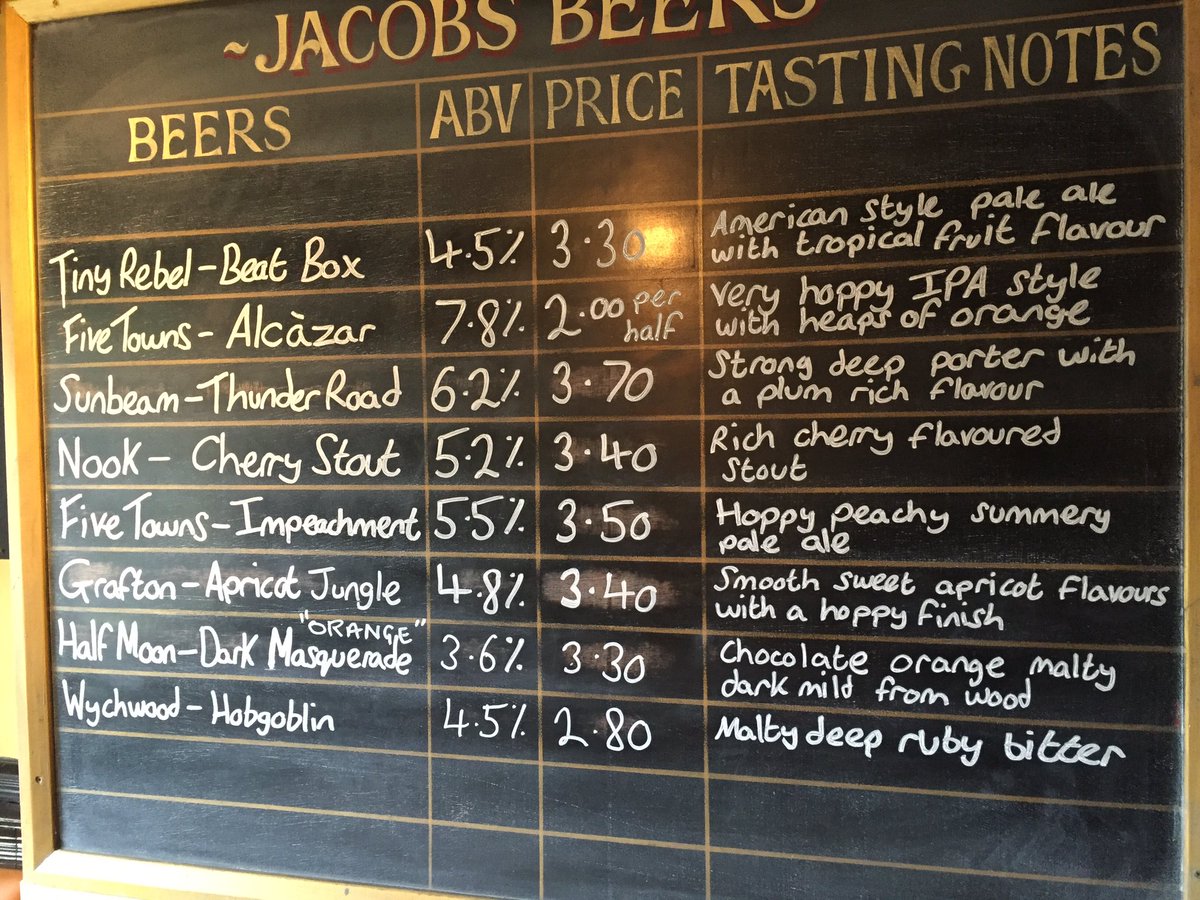 ~JACOBS BEERS
BEERS ABV PRICE TASTING NOTES
Tiny Rebel - Beat Box 4.5% 3.30 American style pale ale
with tropical fruit flavour
Five Towns - Alcàzar 7.8% 2.00 per half Very hoppy IPA style
with heaps of orange
Sunbeam - Thunder Road 6.2% 3.70 Strong deep porter with
a plum rich flavour
Nook - Cherry Stout 5.2% 3.40 Rich cherry flavoured
Stout
Five Towns - Impeachment 5.5% 3.50 Hoppy peachy summery
pale ale
Grafton - Apricot Jungle 4.8% 3.40 Smooth sweet apricot flavours
with a hoppy finish
"ORANGE"
Half Moon - Dark Masquerade 3.6% 3.30 Chocolate orange malty
dark mild from wood
Wychwood - Hobgoblin 4.5% 2.80 Malty deep ruby bitter